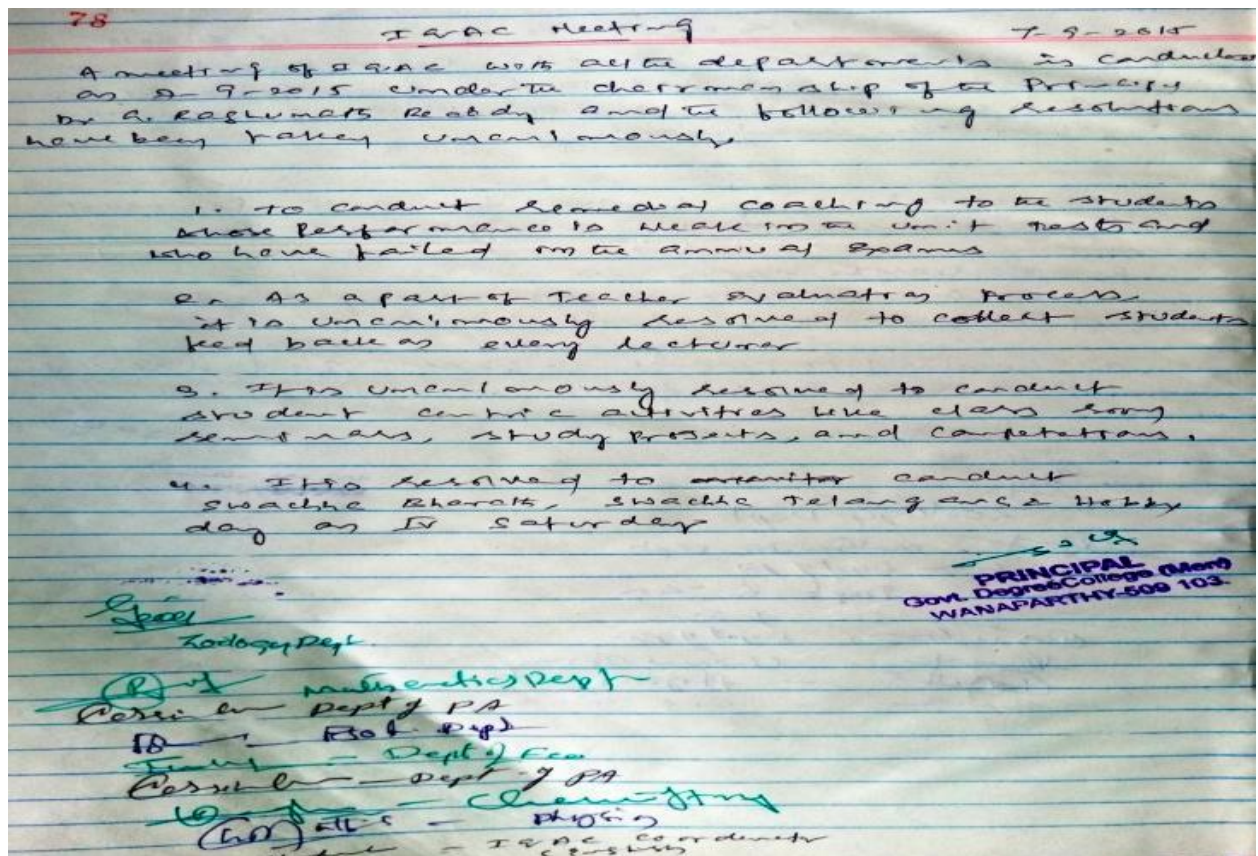 78
IQAC Meeting 7-9-2015
A meeting of IQAC with all the departments is conducted
on 9-2015 under the chairmanship of the Principal
Dr. G. Raghunath Reddy and the following resolutions
have been taken unanimously
1. To conduct remedial coaching to the students
whose performance is weak in the unit tests and
who have failed in the annual exams
2. As a part of Teacher evaluation process
it is unanimously resolved to collect students
feed back on every lecturer
3. It is unanimously resolved to conduct
student centric activities like class room
seminars, study projects, and competetions.
4. It is resolved to conduct
Swachha Bharath, Swachha Telangana Hobby
day on IV Saturday
PRINCIPAL
Govt. Degree College (Men)
WANAPARTHY-509 103.
Zoology Dept.
Mathematics Dept
Dept of PA
Bot. Dept
Dept of Eco
Dept of PA
Chemistry
Physics
IQAC Coordinator